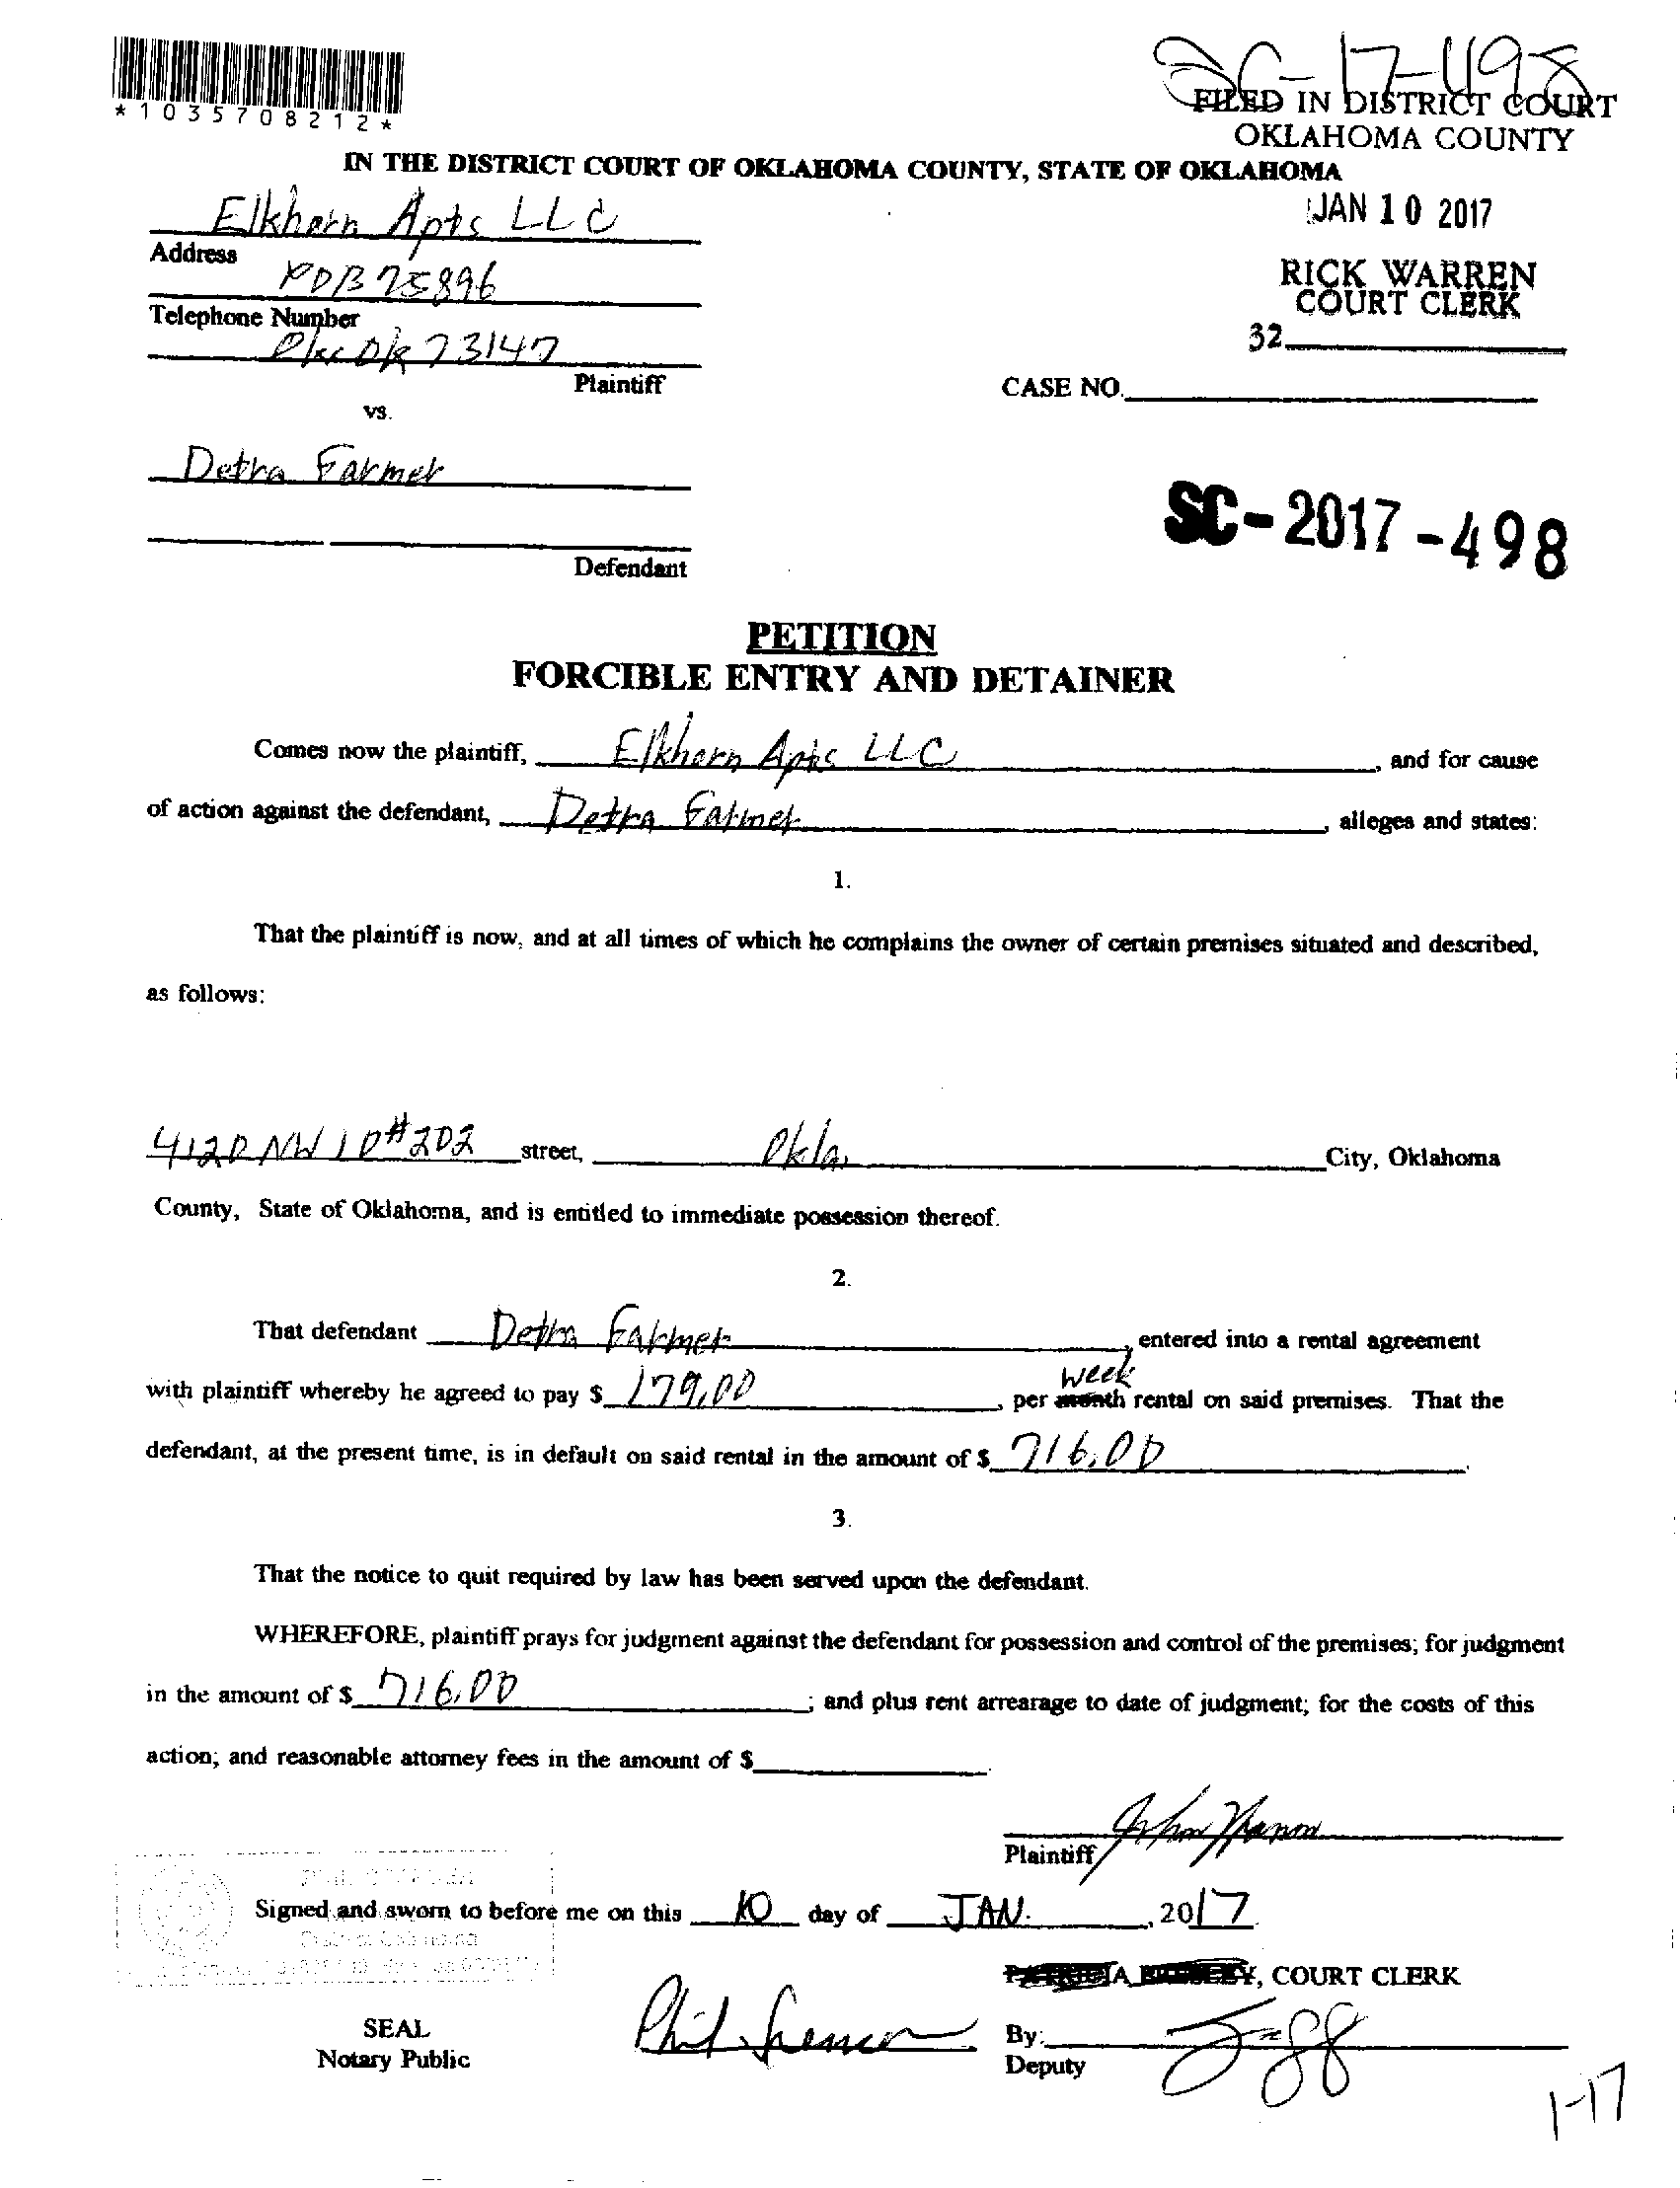 *1035708212*
SC-17-498
FILED IN DISTRICT COURT
OKLAHOMA COUNTY
IN THE DISTRICT COURT OF OKLAHOMA COUNTY, STATE OF OKLAHOMA
Elkhorn Apts LLC
JAN 10 2017
Address
POB 75896
RICK WARREN
COURT CLERK
Telephone Number
Okc Ok 73147
32
Plaintiff
CASE NO.
vs.
Detra Farmer
SC-2017-498
Defendant
PETITION
FORCIBLE ENTRY AND DETAINER
Comes now the plaintiff, Elkhorn Apts LLC, and for cause
of action against the defendant, Detra Farmer, alleges and states:
1.
That the plaintiff is now, and at all times of which he complains the owner of certain premises situated and described,
as follows:
4120 NW 10 #202 street, Okla. City, Oklahoma
County, State of Oklahoma, and is entitled to immediate possession thereof.
2.
That defendant Detra Farmer, entered into a rental agreement
week
with plaintiff whereby he agreed to pay $ 179.00, per month rental on said premises. That the
defendant, at the present time, is in default on said rental in the amount of $ 716.00.
3.
That the notice to quit required by law has been served upon the defendant.
WHEREFORE, plaintiff prays for judgment against the defendant for possession and control of the premises; for judgment
in the amount of $ 716.00; and plus rent arrearage to date of judgment; for the costs of this
action; and reasonable attorney fees in the amount of $.
Plaintiff
Signed and sworn to before me on this 10 day of JAN., 2017
, COURT CLERK
SEAL
Notary Public
Phil
By:
Deputy
1-17